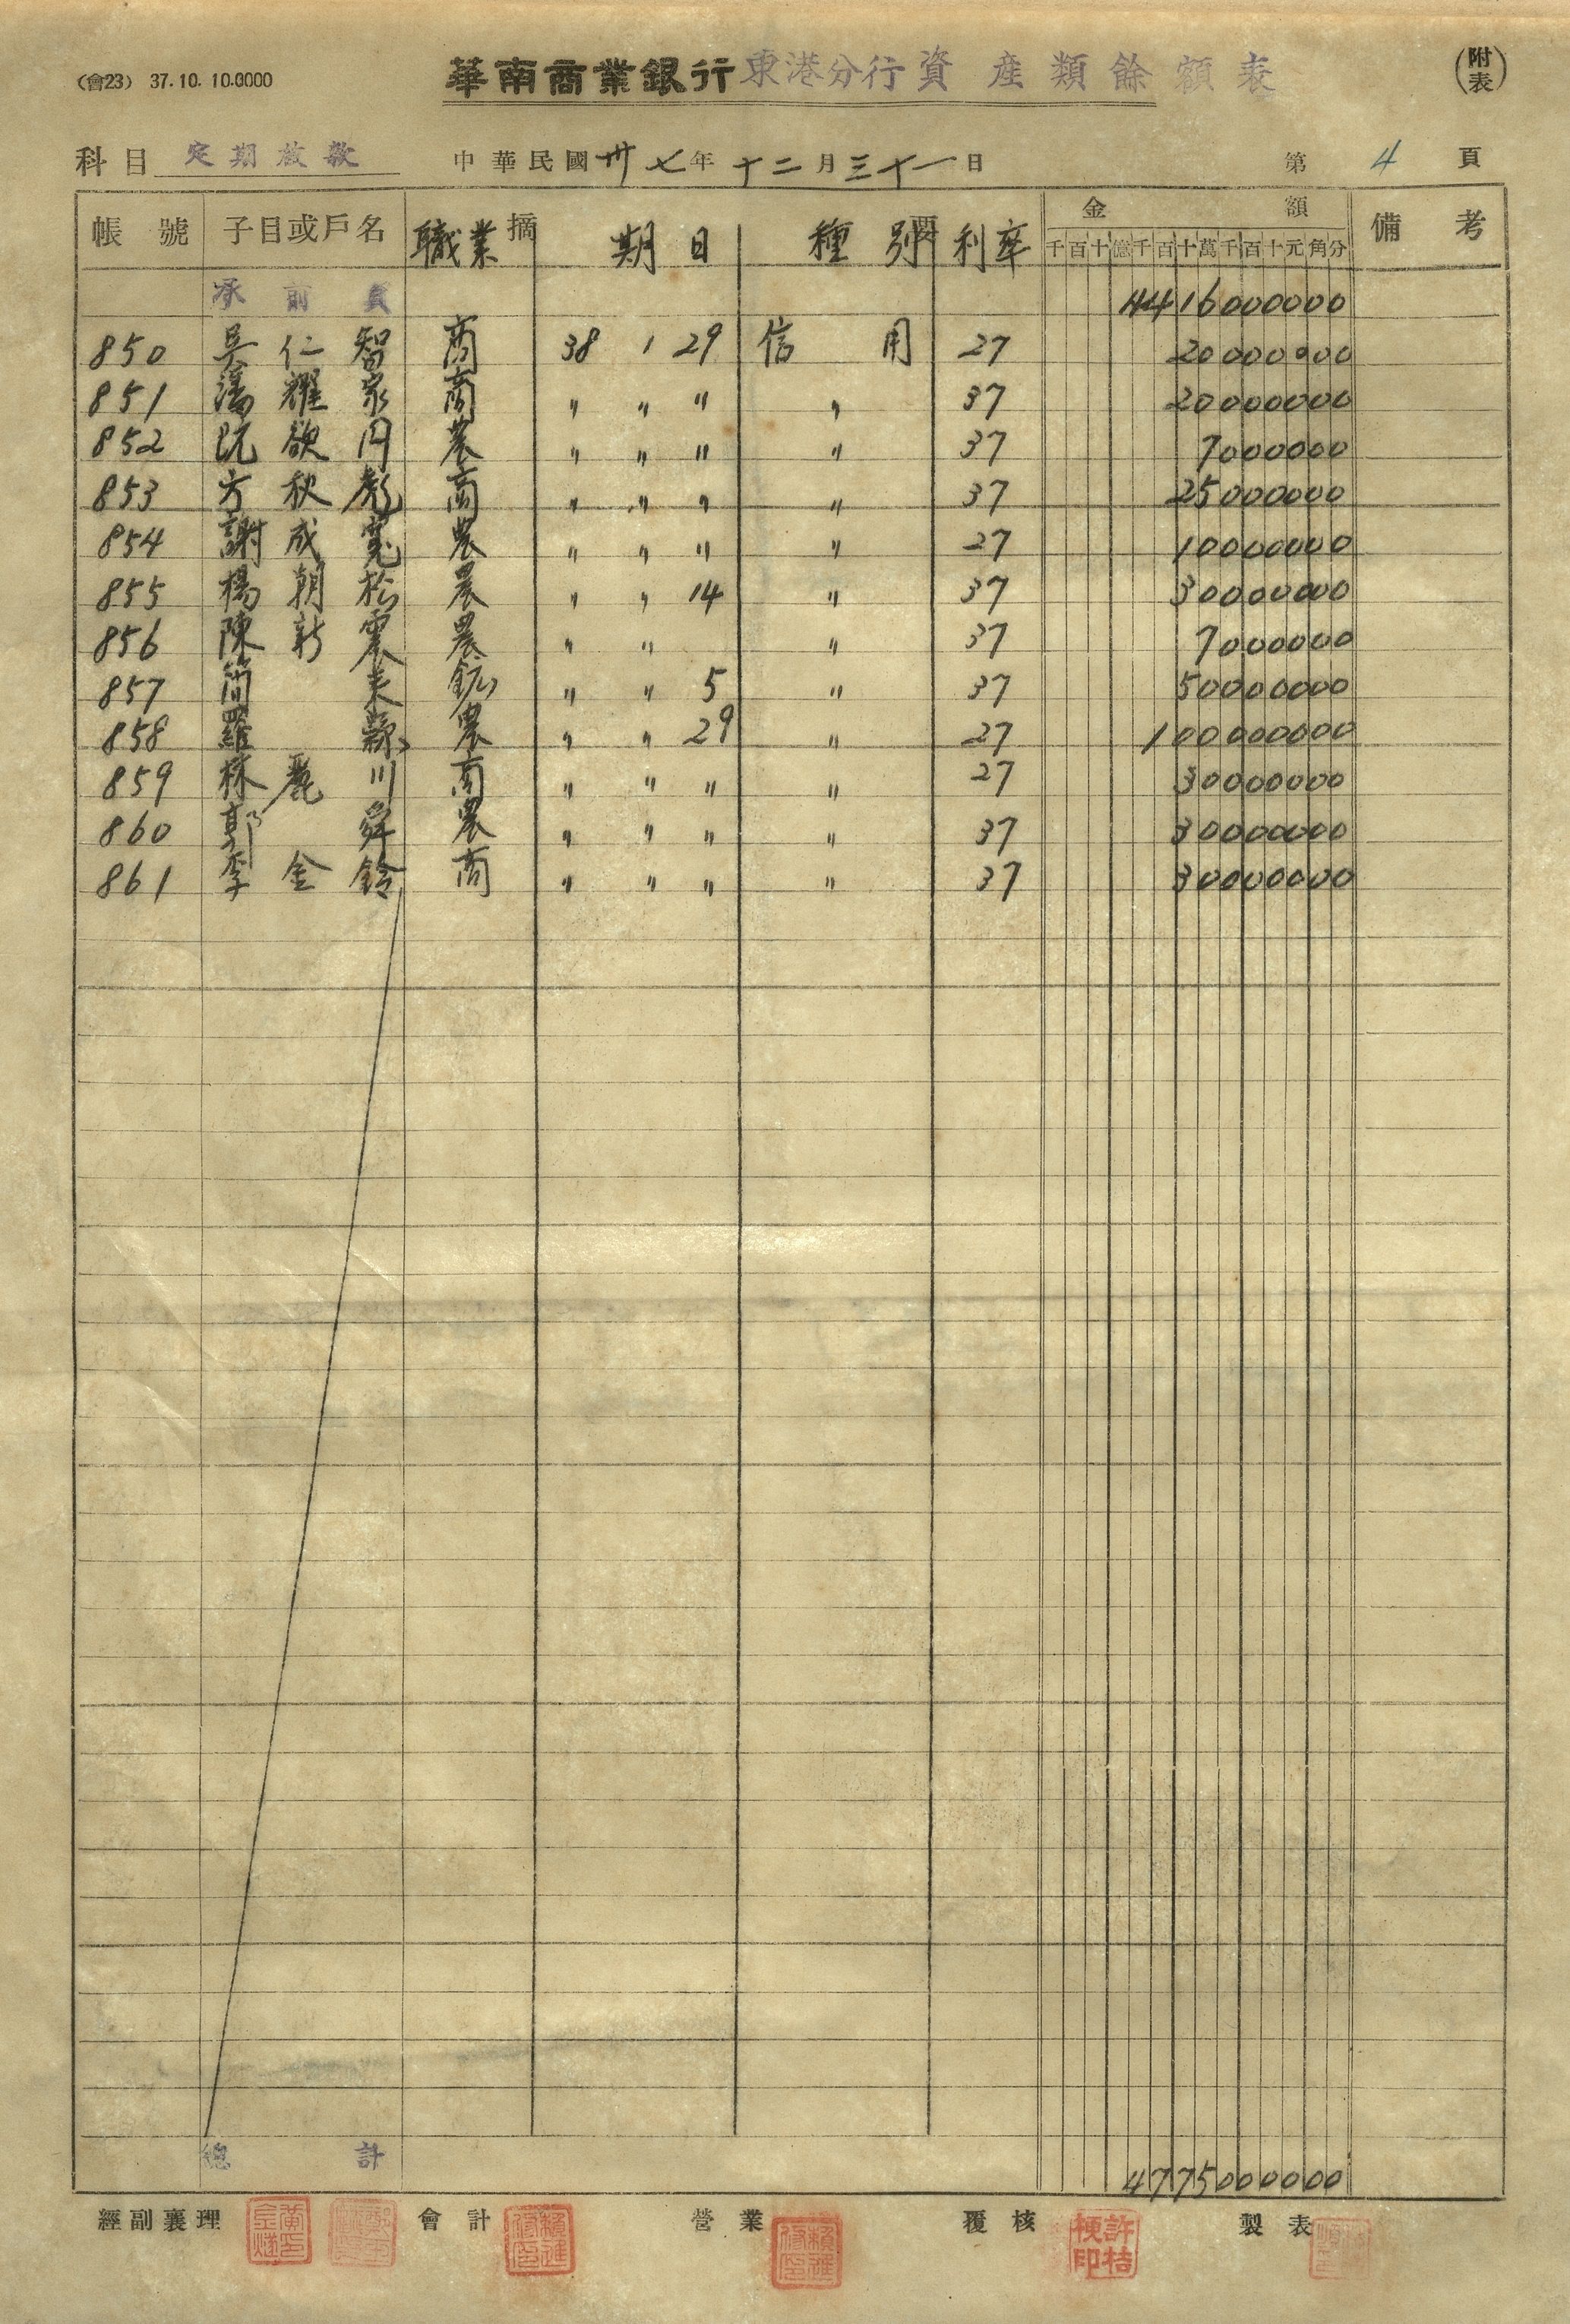 (會23) 37.10.10.0000 華南商業銀行東港分行資產類餘額表 (附表)
科目 定期放款 中華民國卅七年十二月三十一日 第4頁
帳號 子目或戶名 摘要 職業 期日 種別 利率 金額 備考
千百十億千百十萬千百十元角分
承前頁 4416000000
850 吳仁智 商 38 1 29 信用 27 20000000
851 潘耀家 商 〃 〃 〃 〃 37 20000000
852 阮欲円 農 〃 〃 〃 〃 37 7000000
853 方秋彪 商 〃 〃 〃 〃 37 25000000
854 謝成寬 農 〃 〃 〃 〃 27 10000000
855 楊朝松 農 〃 〃 14 〃 37 30000000
856 陳新震 農 〃 〃 〃 37 7000000
857 簡來 鉱 〃 〃 5 〃 37 50000000
858 羅 農 〃 〃 29 〃 27 100000000
859 林麗川 商 〃 〃 〃 〃 27 30000000
860 郭舜 農 〃 〃 〃 〃 37 30000000
861 李金鈴 商 〃 〃 〃 〃 37 30000000
總計 4775000000
經副襄理 會計 營業 覆核 許桔梗印 製表